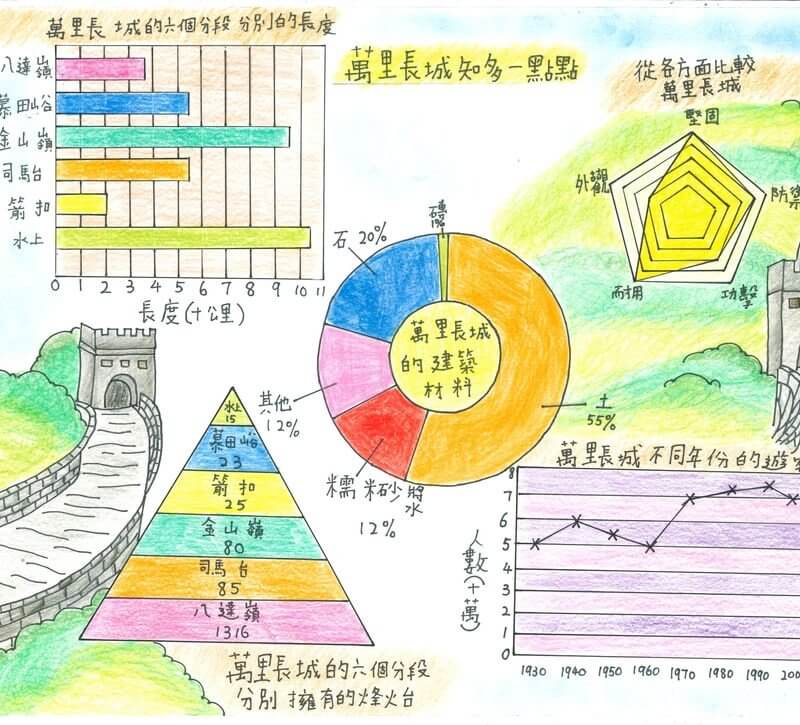 萬里長城的六個分段分別的長度
八達嶺
慕田峪
金山嶺
司馬台
箭扣
水上
0 1 2 3 4 5 6 7 8 9 10 11
長度(十公里)
萬里長城知多一點點
從各方面比較
萬里長城
堅固
外觀
防禦
耐用
功擊
磚
1%
石 20%
其他
12%
糯米砂漿水
12%
土
55%
萬里長城
的建築
材料
水上
15
慕田峪
23
箭扣
25
金山嶺
80
司馬台
85
八達嶺
1316
萬里長城的六個分段
分別擁有的烽火台
萬里長城不同年份的遊
8
7
6
5
4
3
2
1
0
人數(十萬)
1930 1940 1950 1960 1970 1980 1990 200